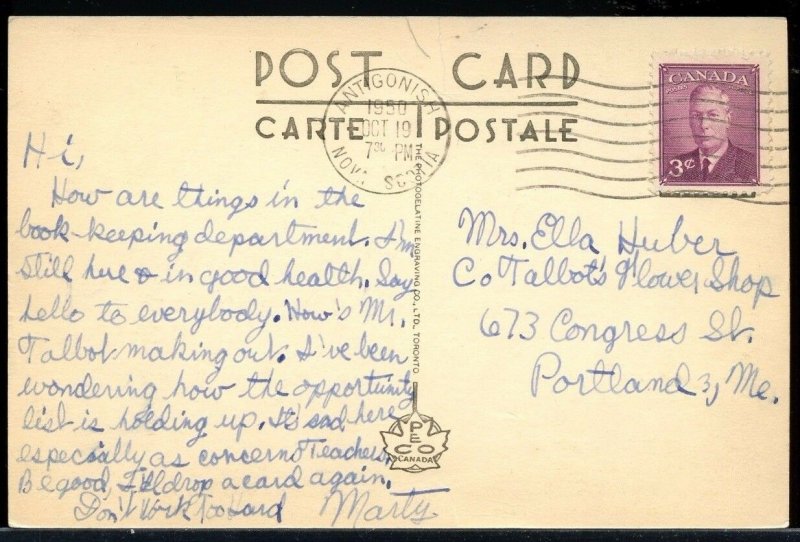 POST CARD
CARTE POSTALE
ANTIGONISH
1950
OCT 19
7 30 PM
NOVA SCOTIA
CANADA
POSTES POSTAGE
3¢
Hi,
How are things in the
book-keeping department. I'm
still here & in good health. Say
hello to everybody. How's Mr.
Talbot making out. I've been
wondering how the opportunity
list is holding up. It's sad here
especially as concerns Teachers.
Be good, I'll drop a card again.
Don't Work Too Hard Marty
THE PHOTOGELATINE ENGRAVING CO., LTD. TORONTO
PECO
CANADA
Mrs. Ella Huber
Co Talbot's Flower Shop
673 Congress St.
Portland 3, Me.